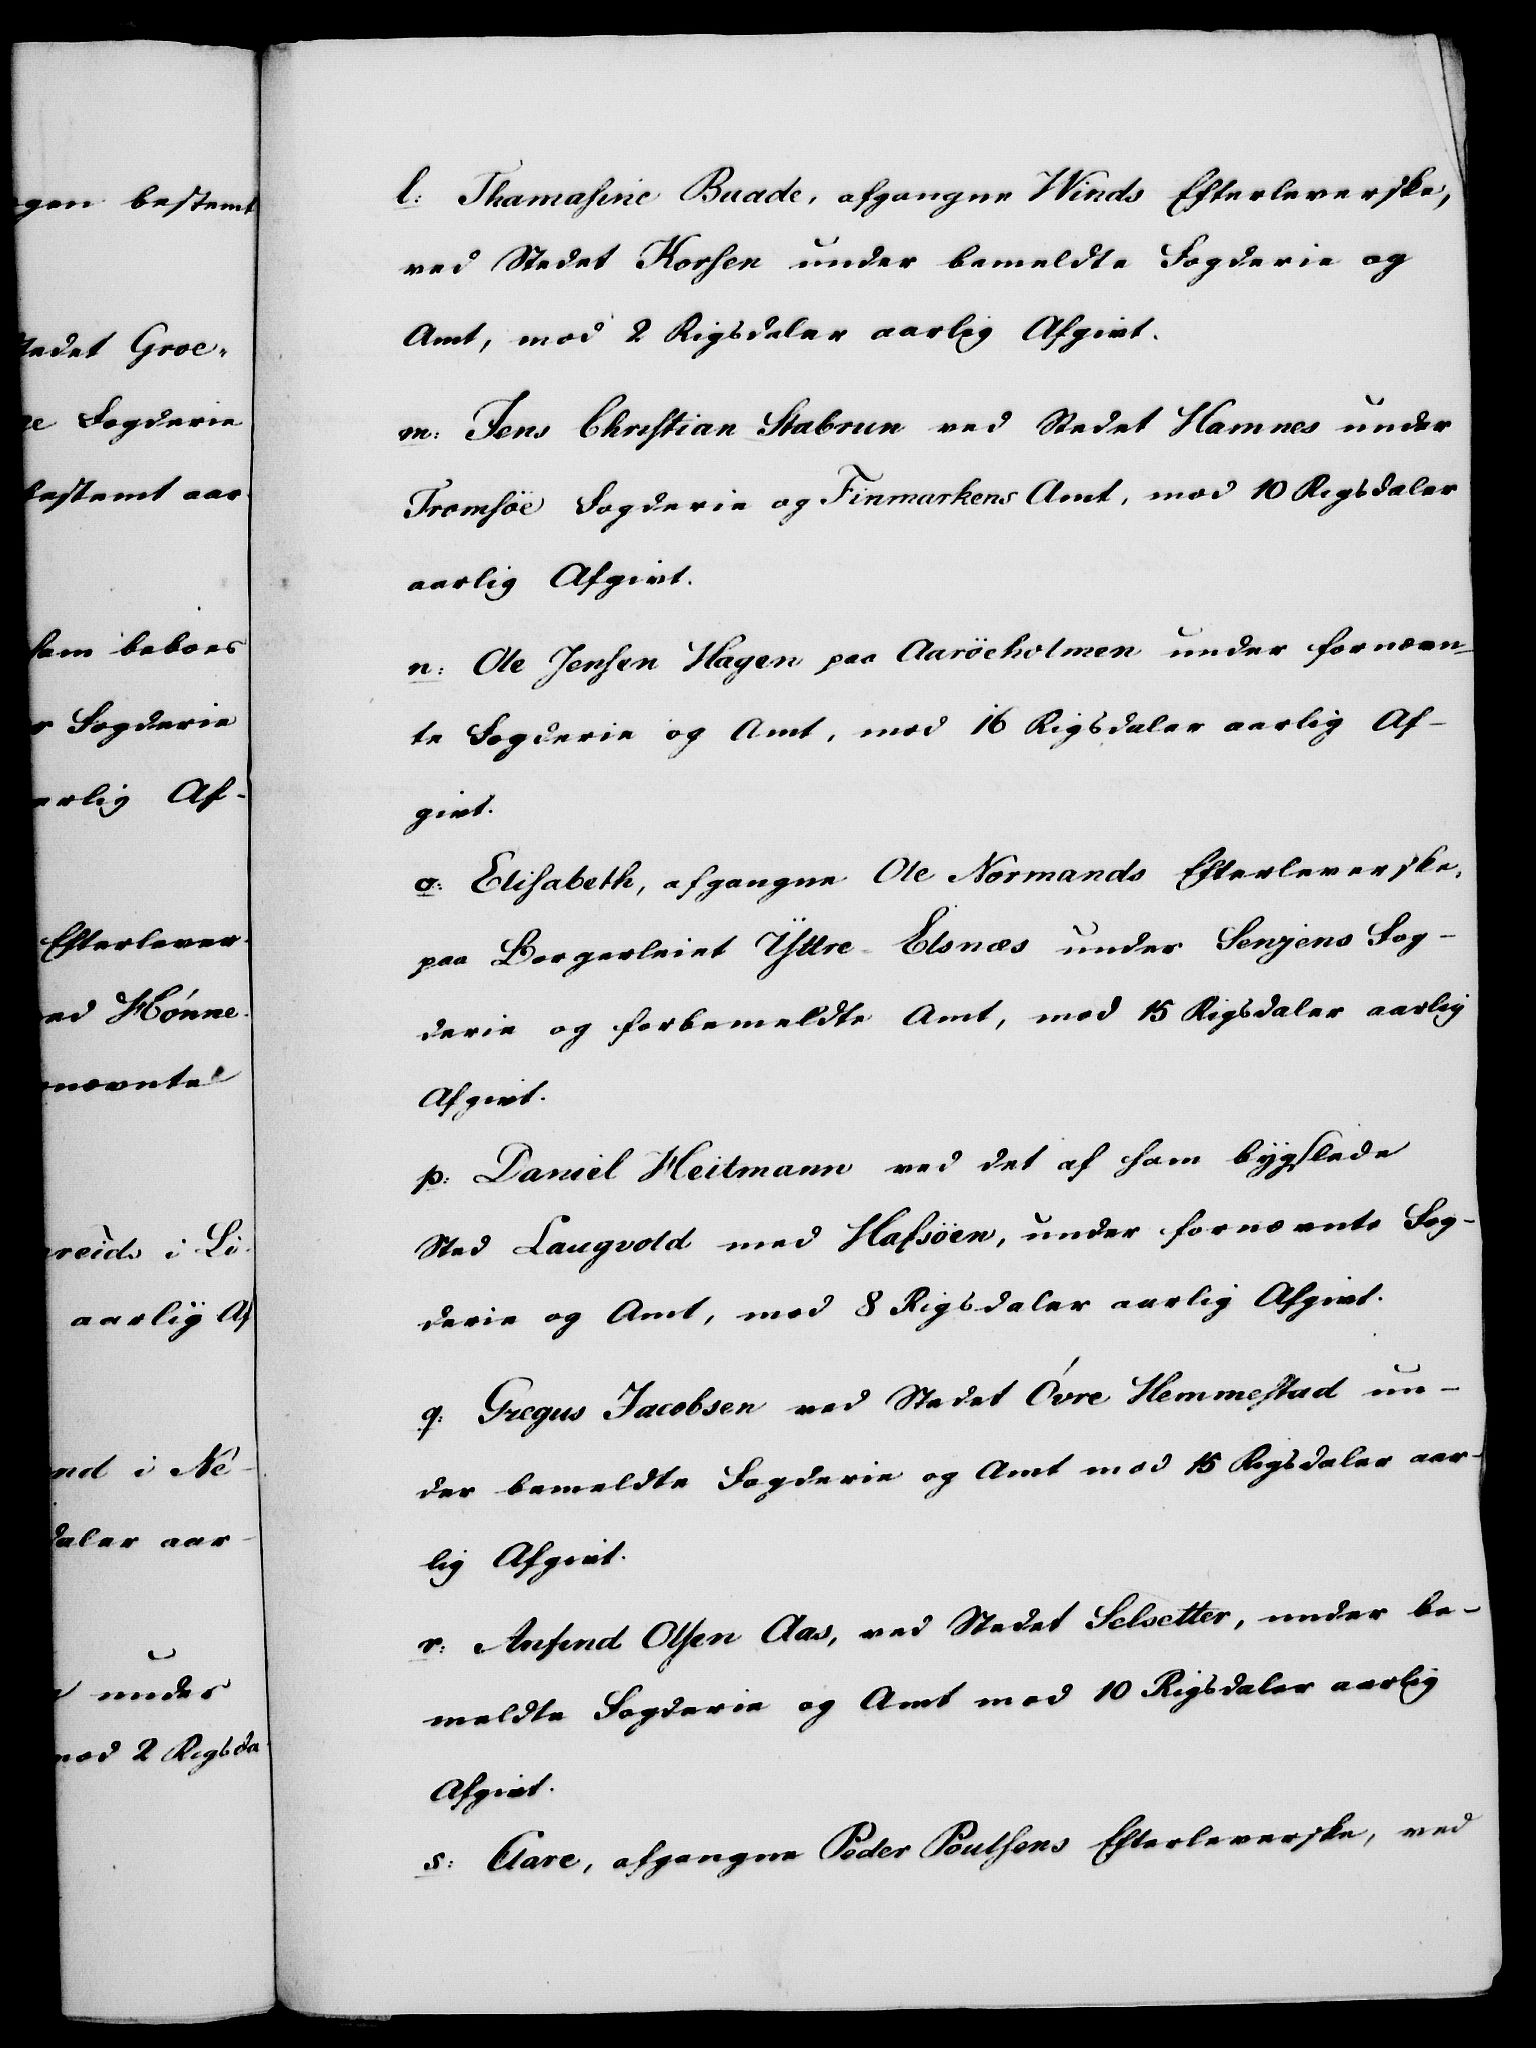 gen bestemt
tedet Groe-
ne Fogderie
bestemt aar-
som beboes
r Fogderie
aarlig Af-
Efterlever-
ved Hónne-
nævnte
reids i Li-
aarlig Af
nd i Ne-
daler aar-
under
mod 2 Rigsda-
l: Thamasine Buade, afgangne Winds Efterleverske,
ved Stedet Korsen under bemeldte Fogderie og
Amt, mod 2 Rigsdaler aarlig Afgivt.
m: Jens Christian Stabrun ved Stedet Hamnes under
Tromsöe Fogderie og Finmarkens Amt, mod 10 Rigsdaler
aarlig Afgivt.
n: Ole Jensen Hagen paa Aaröeholmen under fornævn-
te Fogderie og Amt, mod 16 Rigsdaler aarlig Af-
givt.
o: Elisabeth, afgangne Ole Normands Efterleverske,
paa Borgerleiet Ÿttre-Elsnæs under Senjens Fog-
derie og forbemeldte Amt, mod 15 Rigsdaler aarlig
Afgivt.
p: Daniel Heitmann ved det af ham bygslede
Sted Laugvold med Hafsöen, under fornævnte Fog-
derie og Amt, mod 8 Rigsdaler aarlig Afgivt.
q: Gregus Jacobsen ved Stedet Óvre Hemmestad un-
der bemeldte Fogderie og Amt mod 15 Rigsdaler aar-
lig Afgivt.
r: Anfind Olsen Aas, ved Stedet Selsetter, under be-
meldte Fogderie og Amt mod 10 Rigsdaler aarlig
Afgivt.
s: Clare, afgangne Peder Poulsens Efterleverske, ved